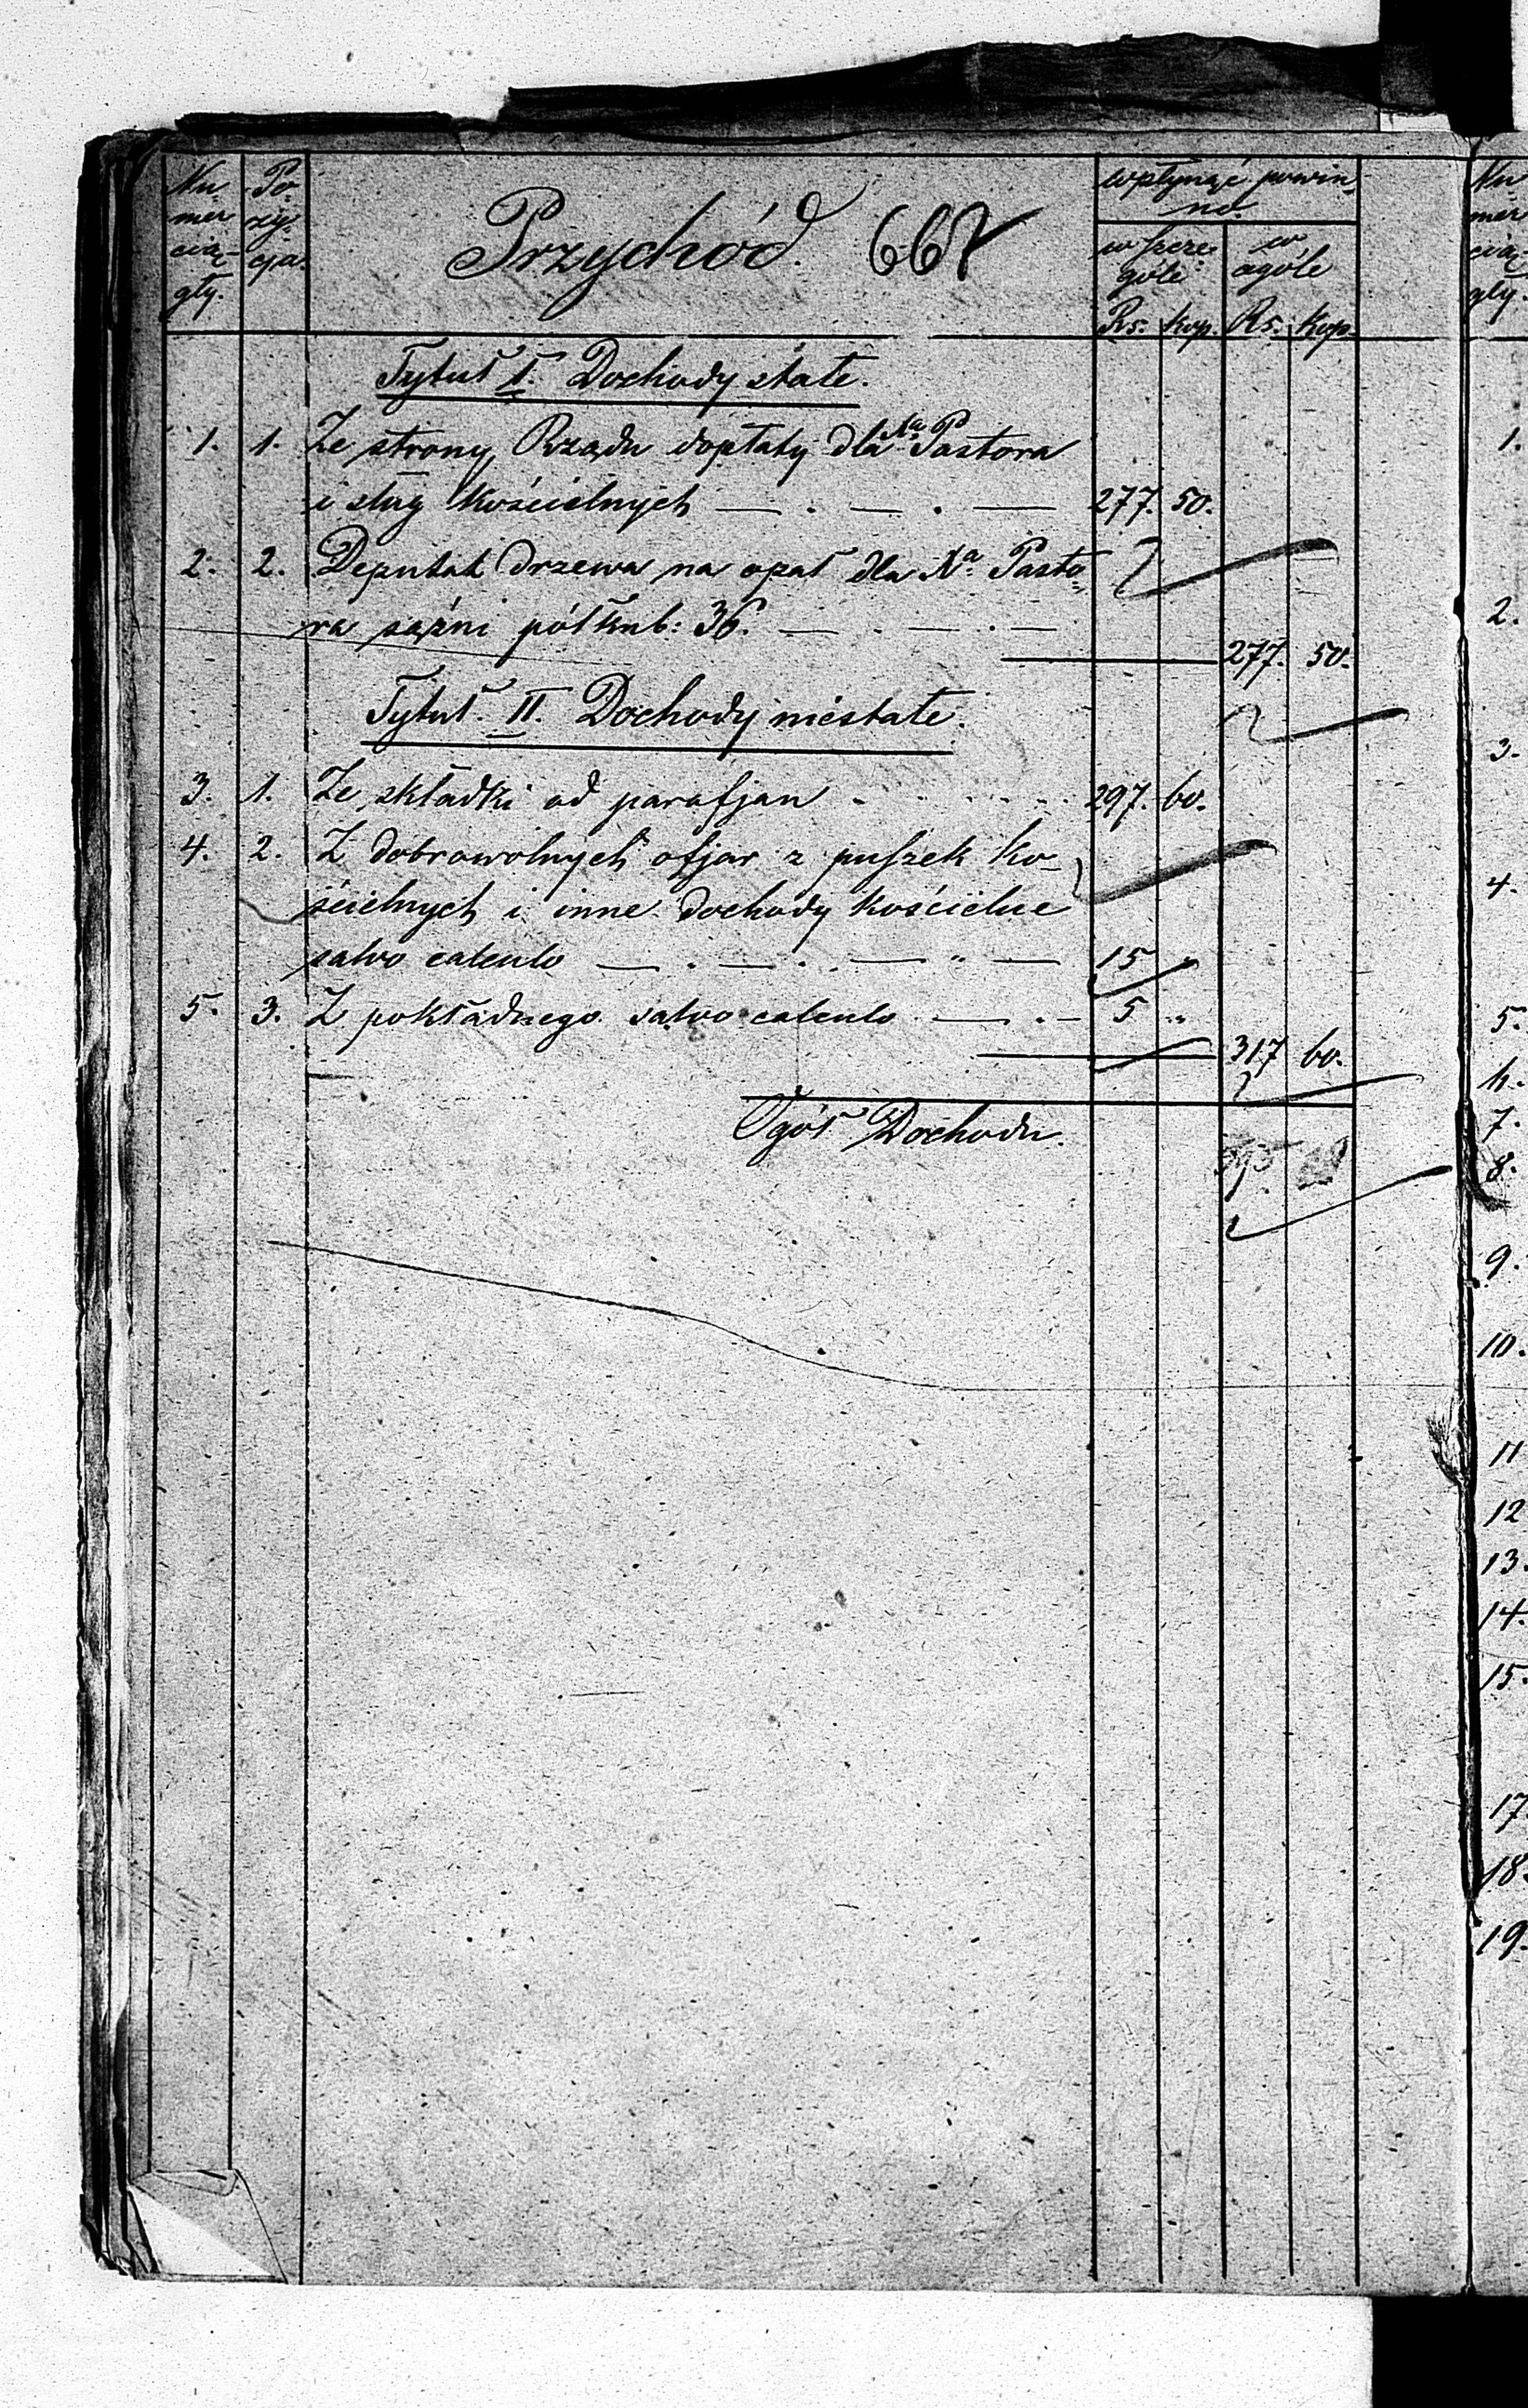 Nu
mer
cią-
gły.
Po
zy-
cja.
Przychód. 667
wpłynąć powin-
no.
w szcze-
góle
w
ogóle
Rs. Kop. Rs. Kop.
Tytuł I. Dochody stałe.
1. 1. Ze strony Rządu dopłaty dla Xa Pastora
i sług kościelnych 277. 50.
2. 2. Deputat drzewa na opał dla Xa Pasto-
ra sążni półkub: 36.
277. 50.
Tytuł. II. Dochody niestałe.
3. 1. Ze składki od parafjan 297. 60.
4. 2. Z dobrowolnych ofjar z puszek ko-
ścielnych i inne dochody kościelne
salvo calculo 15 "
5. 3. Z pokładnego salvo calculo 5 "
317 60.
Ogół Dochodu.
595
Nu
mer
cią-
gły.
1.
2.
3.
4.
5.
7.
8.
9.
10.
11
12
13.
14.
15.
17.
18.
19.